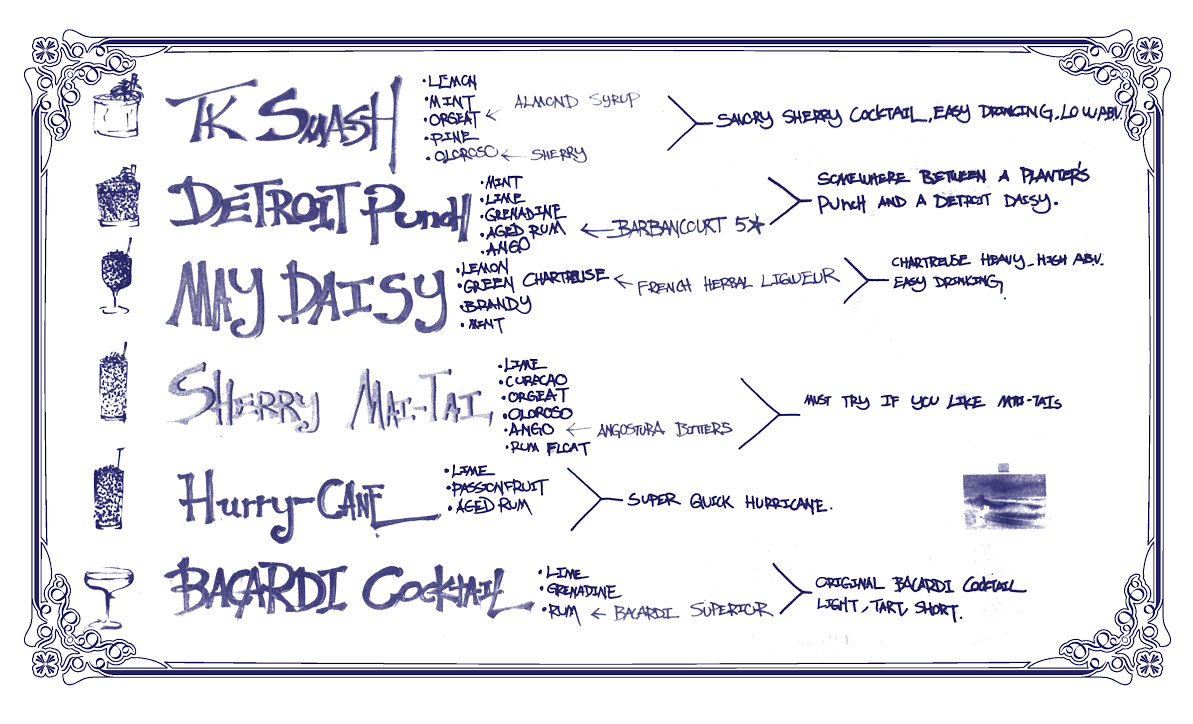 TK SMASH
·LEMON
·MINT
·ORGEAT ← ALMOND SYRUP
·PINE
·OLOROSO ← SHERRY
SAVORY SHERRY COCKTAIL, EASY DRINKING, LOW ABV.
DETROIT PUNCH
·MINT
·LIME
·GRENADINE
·AGED RUM ← BARBANCOURT 5★
·ANGO
SOMEWHERE BETWEEN A PLANTER'S
PUNCH AND A DETROIT DAISY.
MAY DAISY
·LEMON
·GREEN CHARTREUSE ← FRENCH HERBAL LIQUEUR
·BRANDY
·MINT
CHARTREUSE HEAVY, HIGH ABV.
EASY DRINKING.
SHERRY MAI-TAI
·LIME
·CURACAO
·ORGEAT
·OLOROSO
·ANGO ← ANGOSTURA BITTERS
·RUM FLOAT
MUST TRY IF YOU LIKE MAI-TAIS
Hurry-CANE
·LIME
·PASSIONFRUIT
·AGED RUM
SUPER QUICK HURRICANE.
BACARDI COCKTAIL
·LIME
·GRENADINE
·RUM ← BACARDI SUPERIOR
ORIGINAL BACARDI COCKTAIL
LIGHT, TART, SHORT.